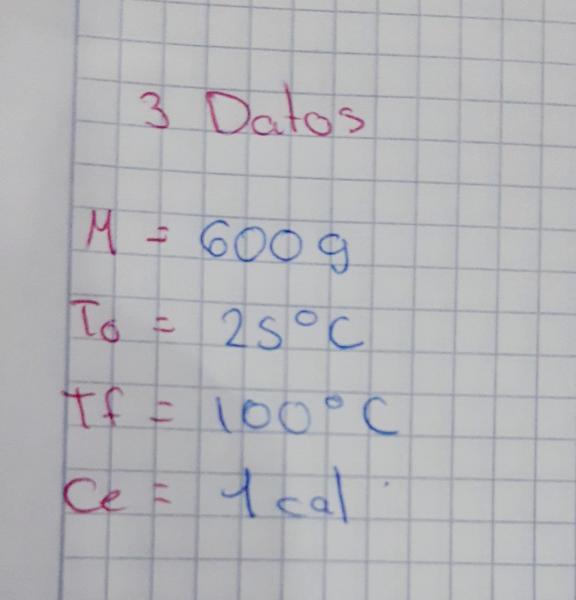 3 Datos
M = 600 g
To = 25°C
Tf = 100°C
Ce = 1 cal